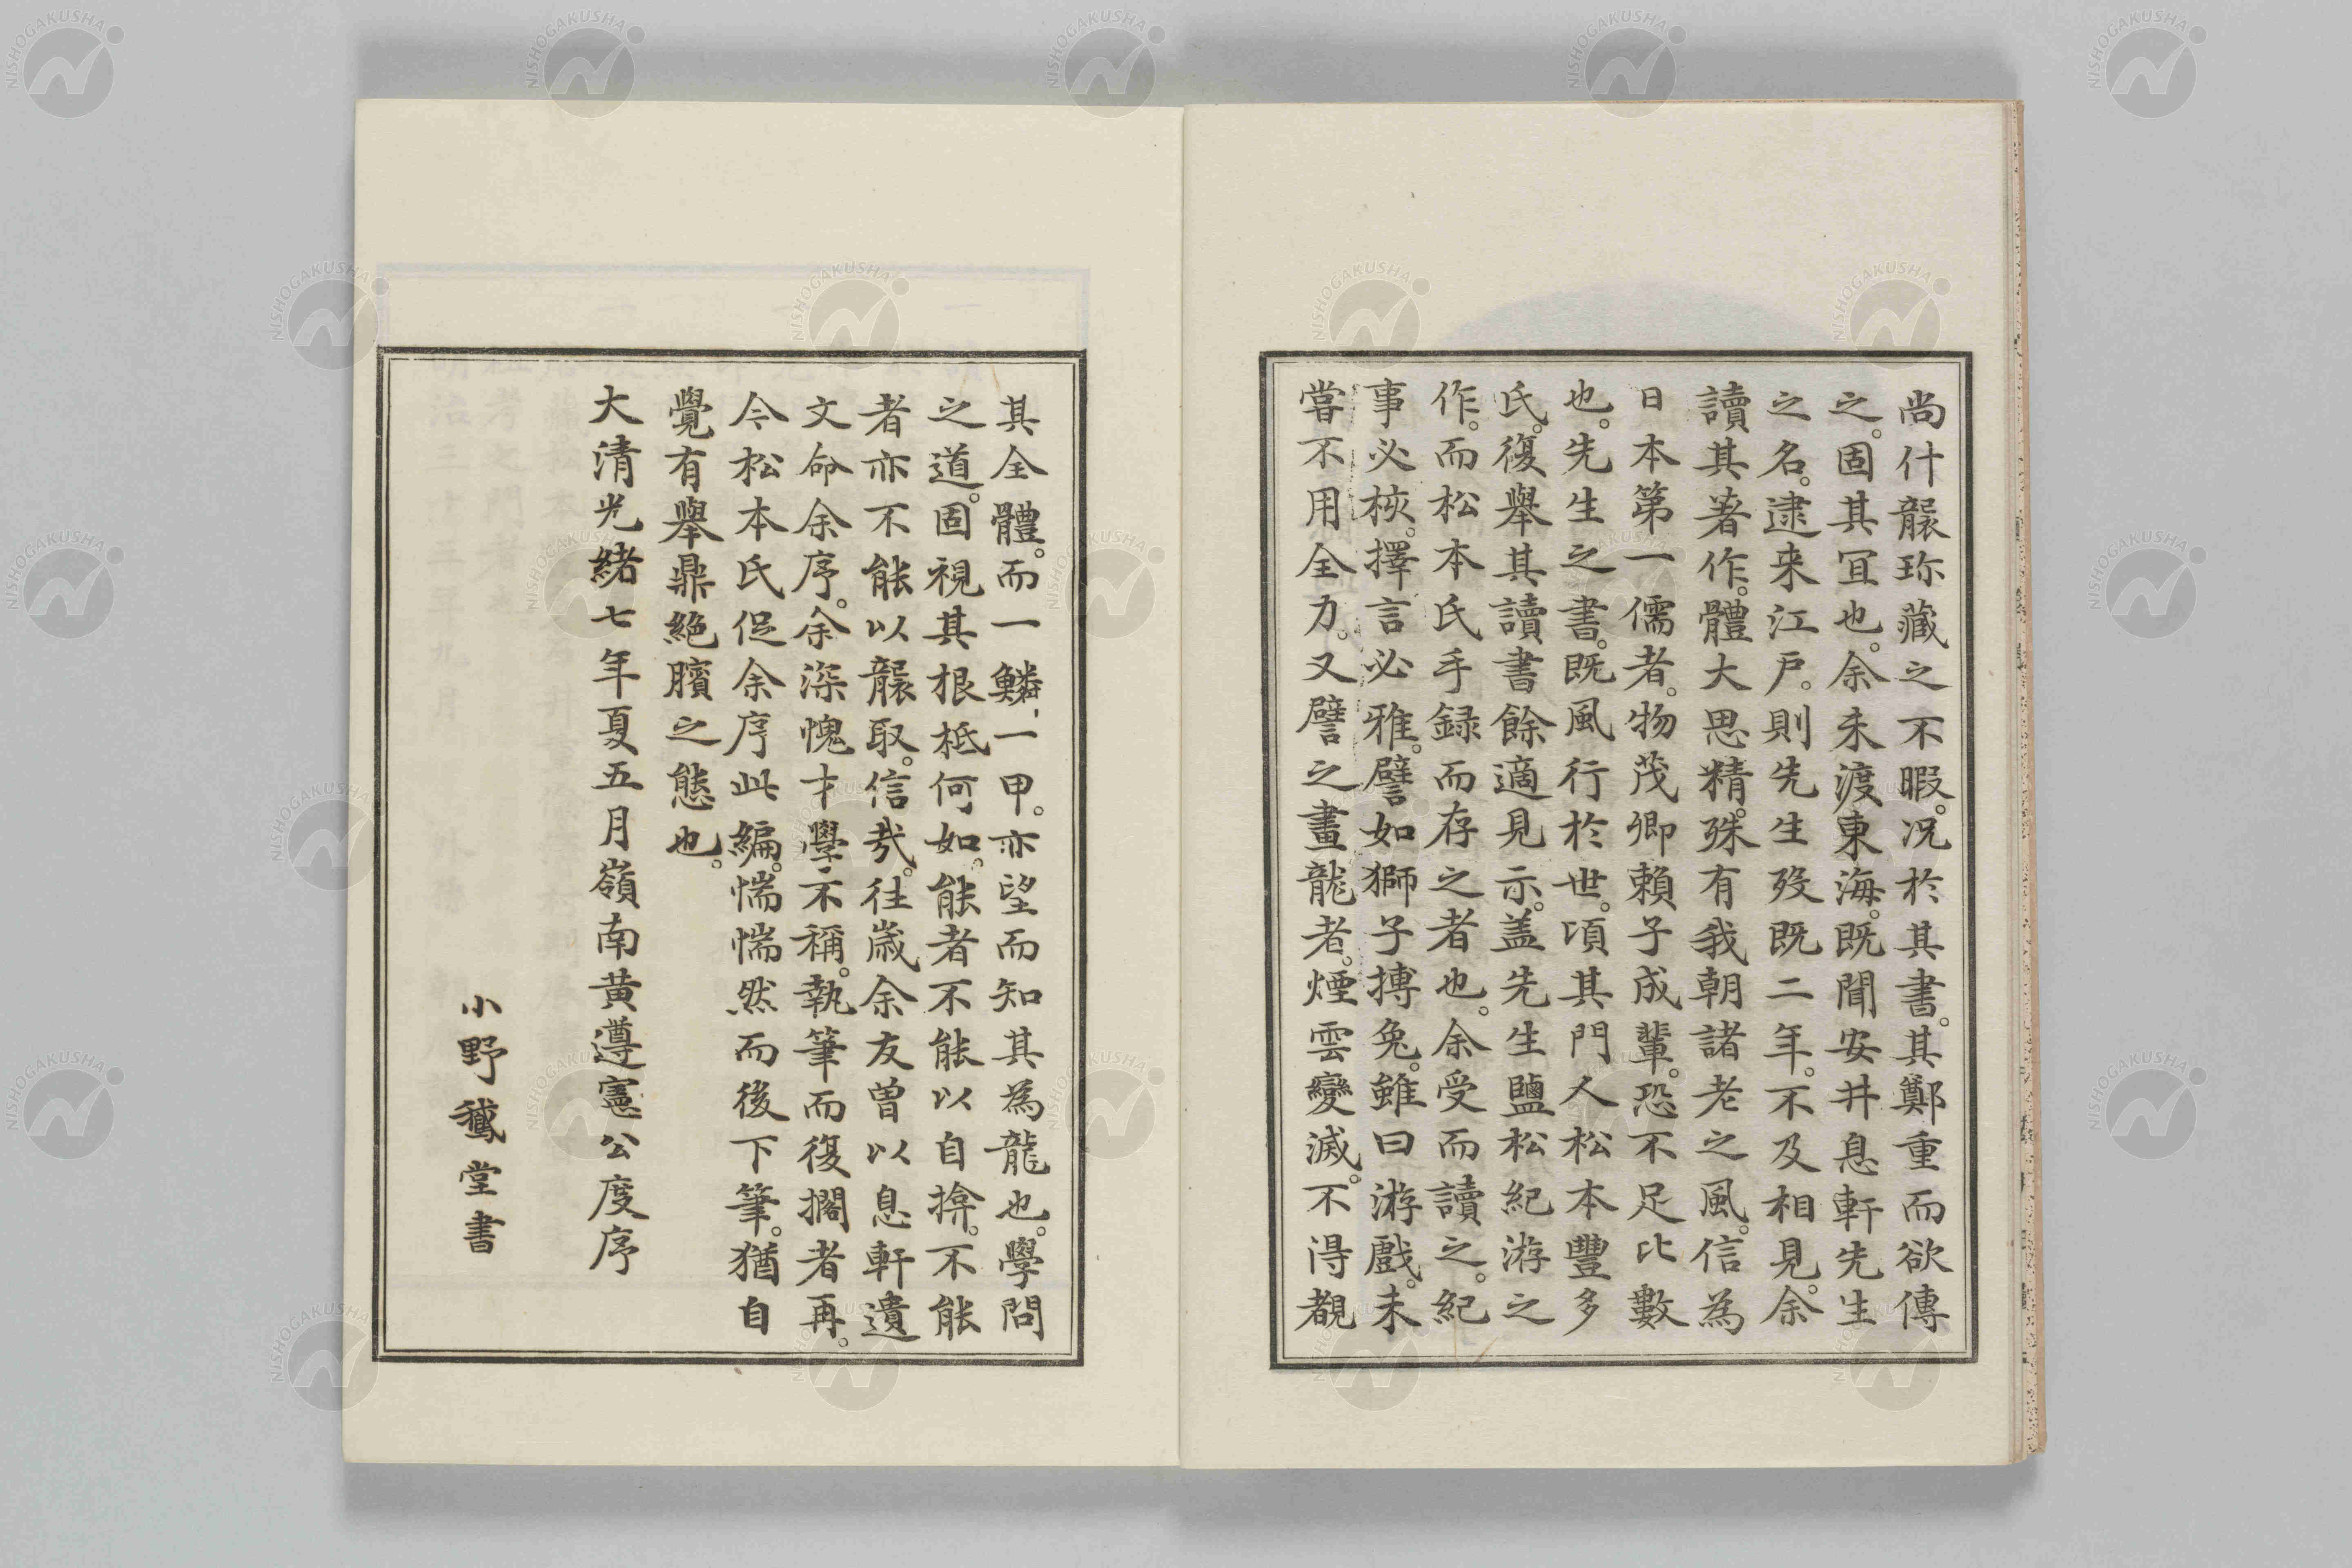 尚什襲珎藏之不暇。况於其書。其鄭重而欲傳
之。固其宜也。余未渡東海。既聞安井息軒先生
之名。逮来江戸。則先生歿既二年。不及相見。余
讀其著作。體大思精。殊有我朝諸老之風。信為
日本第一儒者。物茂卿賴子成輩。恐不足比數
也。先生之書。既風行於世。頃其門人松本豐多
氏。復舉其讀書餘適見示。盖先生鹽松紀游之
作。而松本氏手録而存之者也。余受而讀之。紀
事必核。擇言必雅。譬如獅子搏兔。雖曰游戲。未
嘗不用全力。又譬之畫龍者。煙雲變滅。不得覩
其全體。而一鱗一甲。亦望而知其為龍也。學問
之道。固視其根柢何如。能者不能以自揜。不能
者亦不能以襲取。信哉。往歳余友曽以息軒遺
文命余序。余深愧才學不稱。執筆而復擱者再。
今松本氏促余序此編。惴惴然而後下筆。猶自
覺有舉鼎絶臏之態也。
大清光緒七年夏五月嶺南黄遵憲公度序
小野鵞堂書
NISHOGAKUSHA